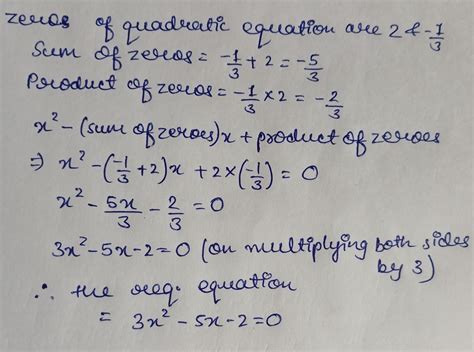 zeros of quadratic equation are 2 & -1/3
Sum of zeros = -1/3 + 2 = -5/3
Product of zeros = -1/3 × 2 = -2/3
x² - (sum of zeroes)x + product of zeroes
⇒ x² - (-1/3 + 2)x + 2×(-1/3) = 0
x² - 5x/3 - 2/3 = 0
3x² - 5x - 2 = 0 (on multiplying both sides by 3)
∴ the req. equation
= 3x² - 5x - 2 = 0